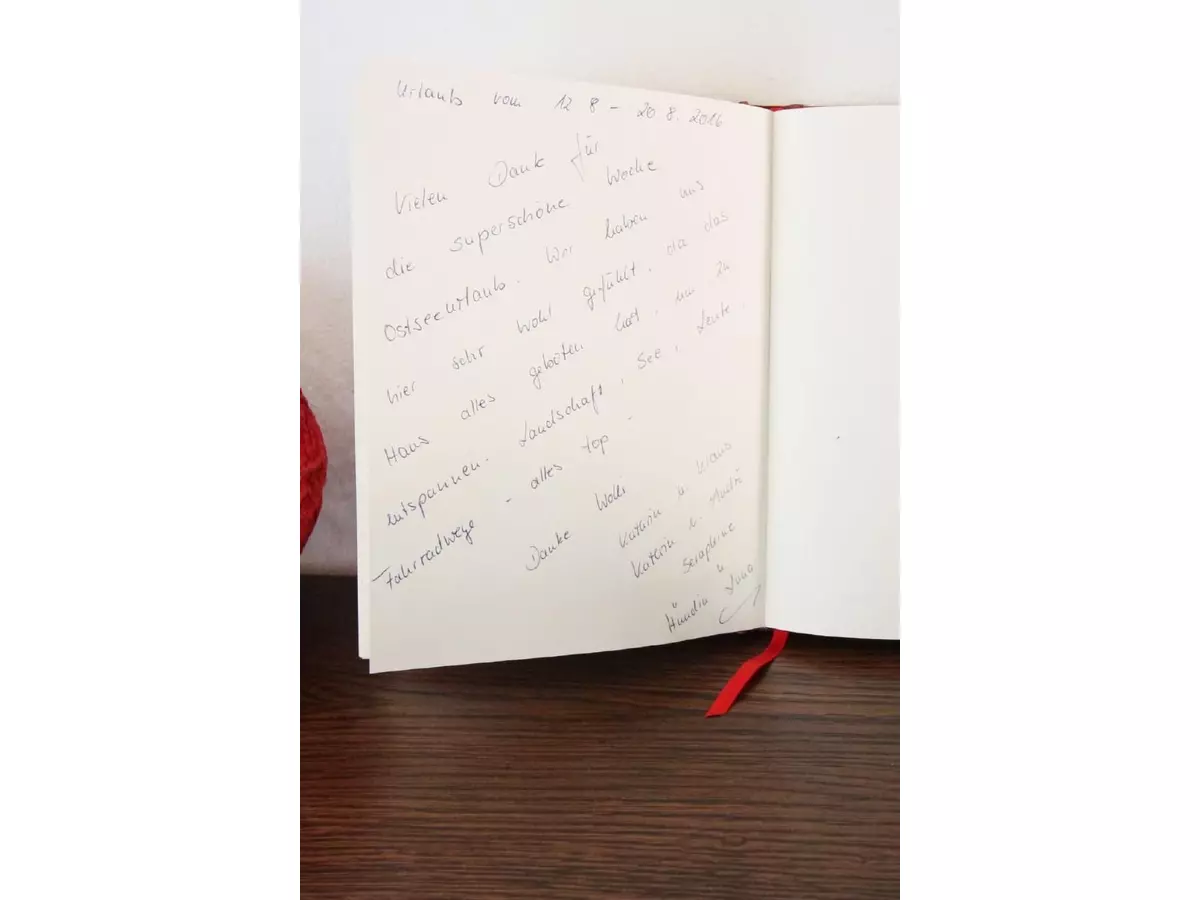 Urlaub vom 12 8 - 20 8. 2016
Vielen Dank für
die superschöne Woche
Ostseeurlaub. Wir haben uns
hier sehr wohl gefühlt, da das
Haus alles geboten hat, um zu
entspannen. Landschaft, See, Leute,
Fahrradwege - alles top -
Danke Wolli
Katrin u.
Katrin u. André
Seraphine
u
Hündin Luna